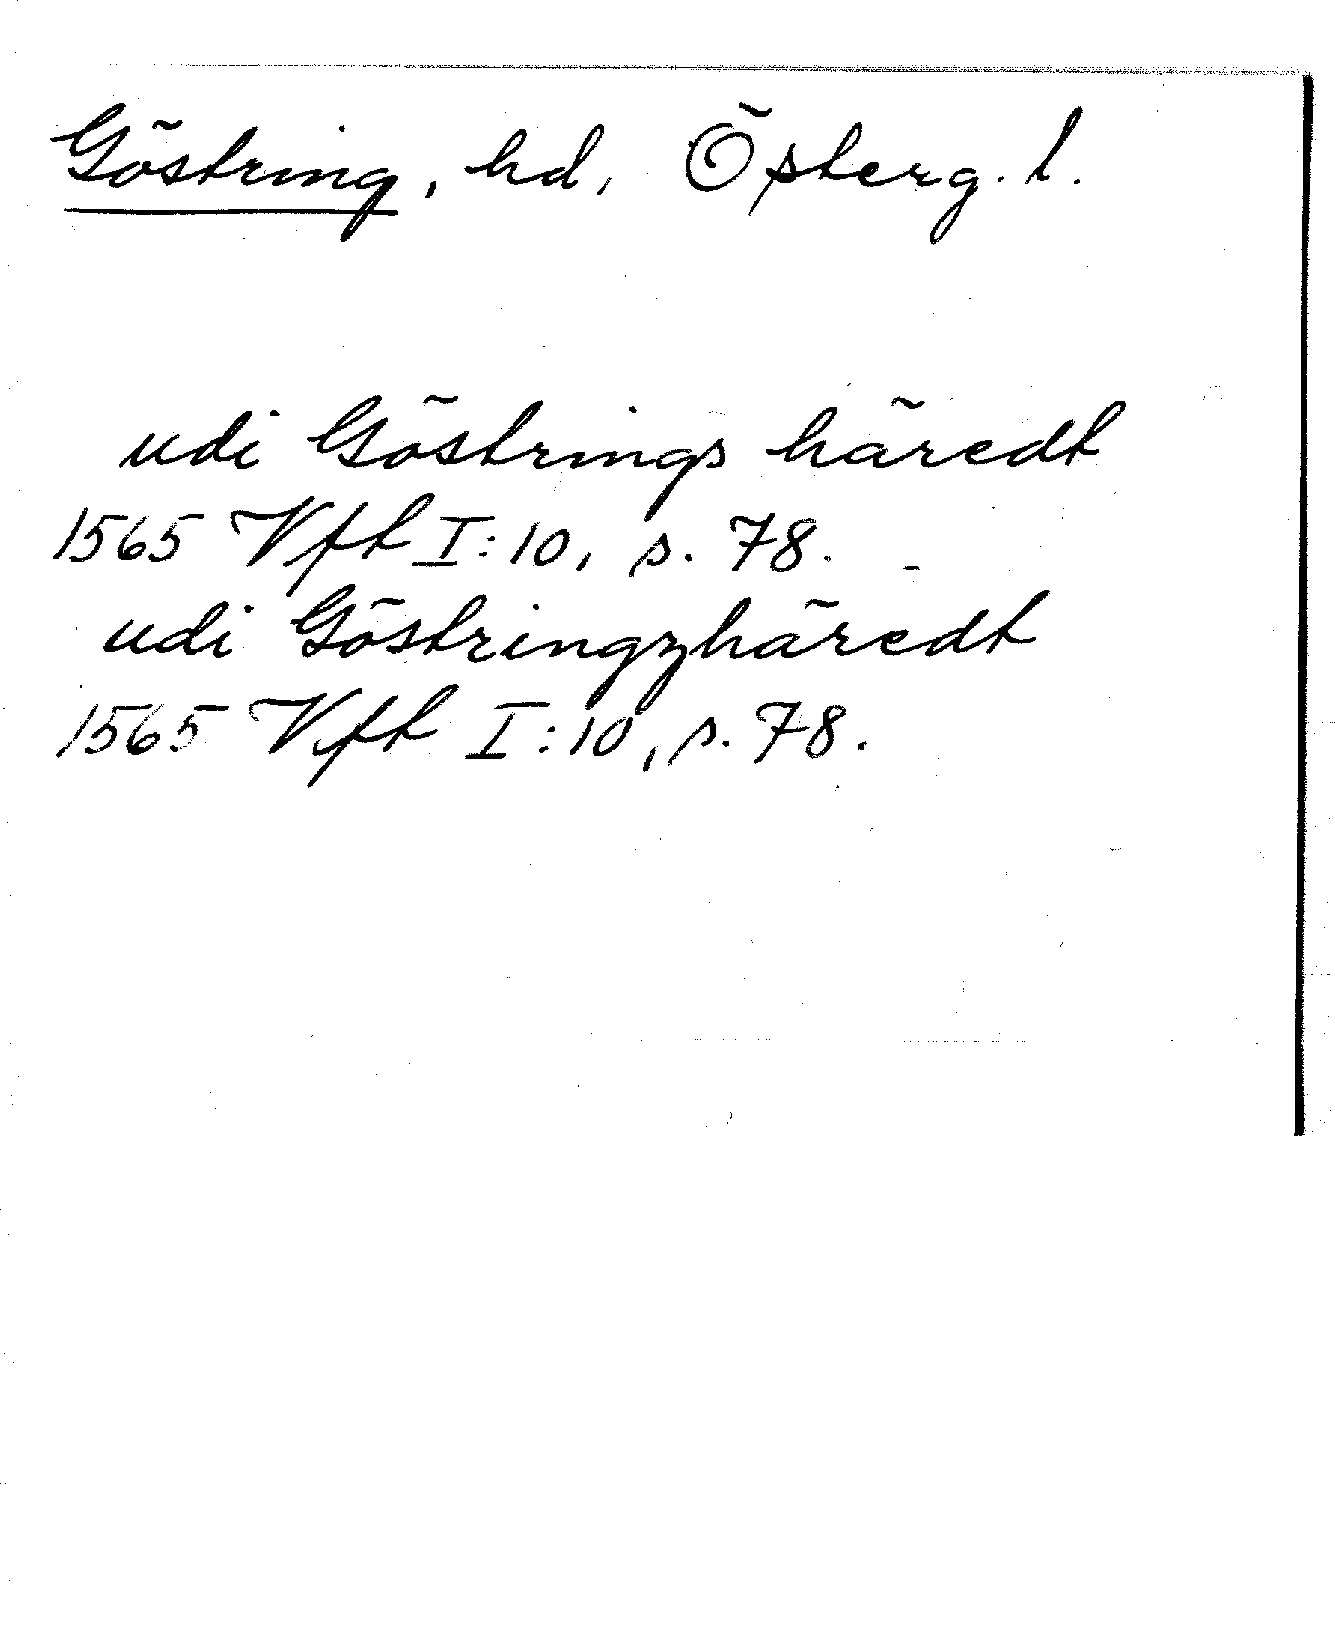 Göstring, hd, Österg. l.
udi Göstrings häredt
1565 Vft I:10, s. 78. -
udi Göstringzhäredt
1565 Vft I:10, s. 78.